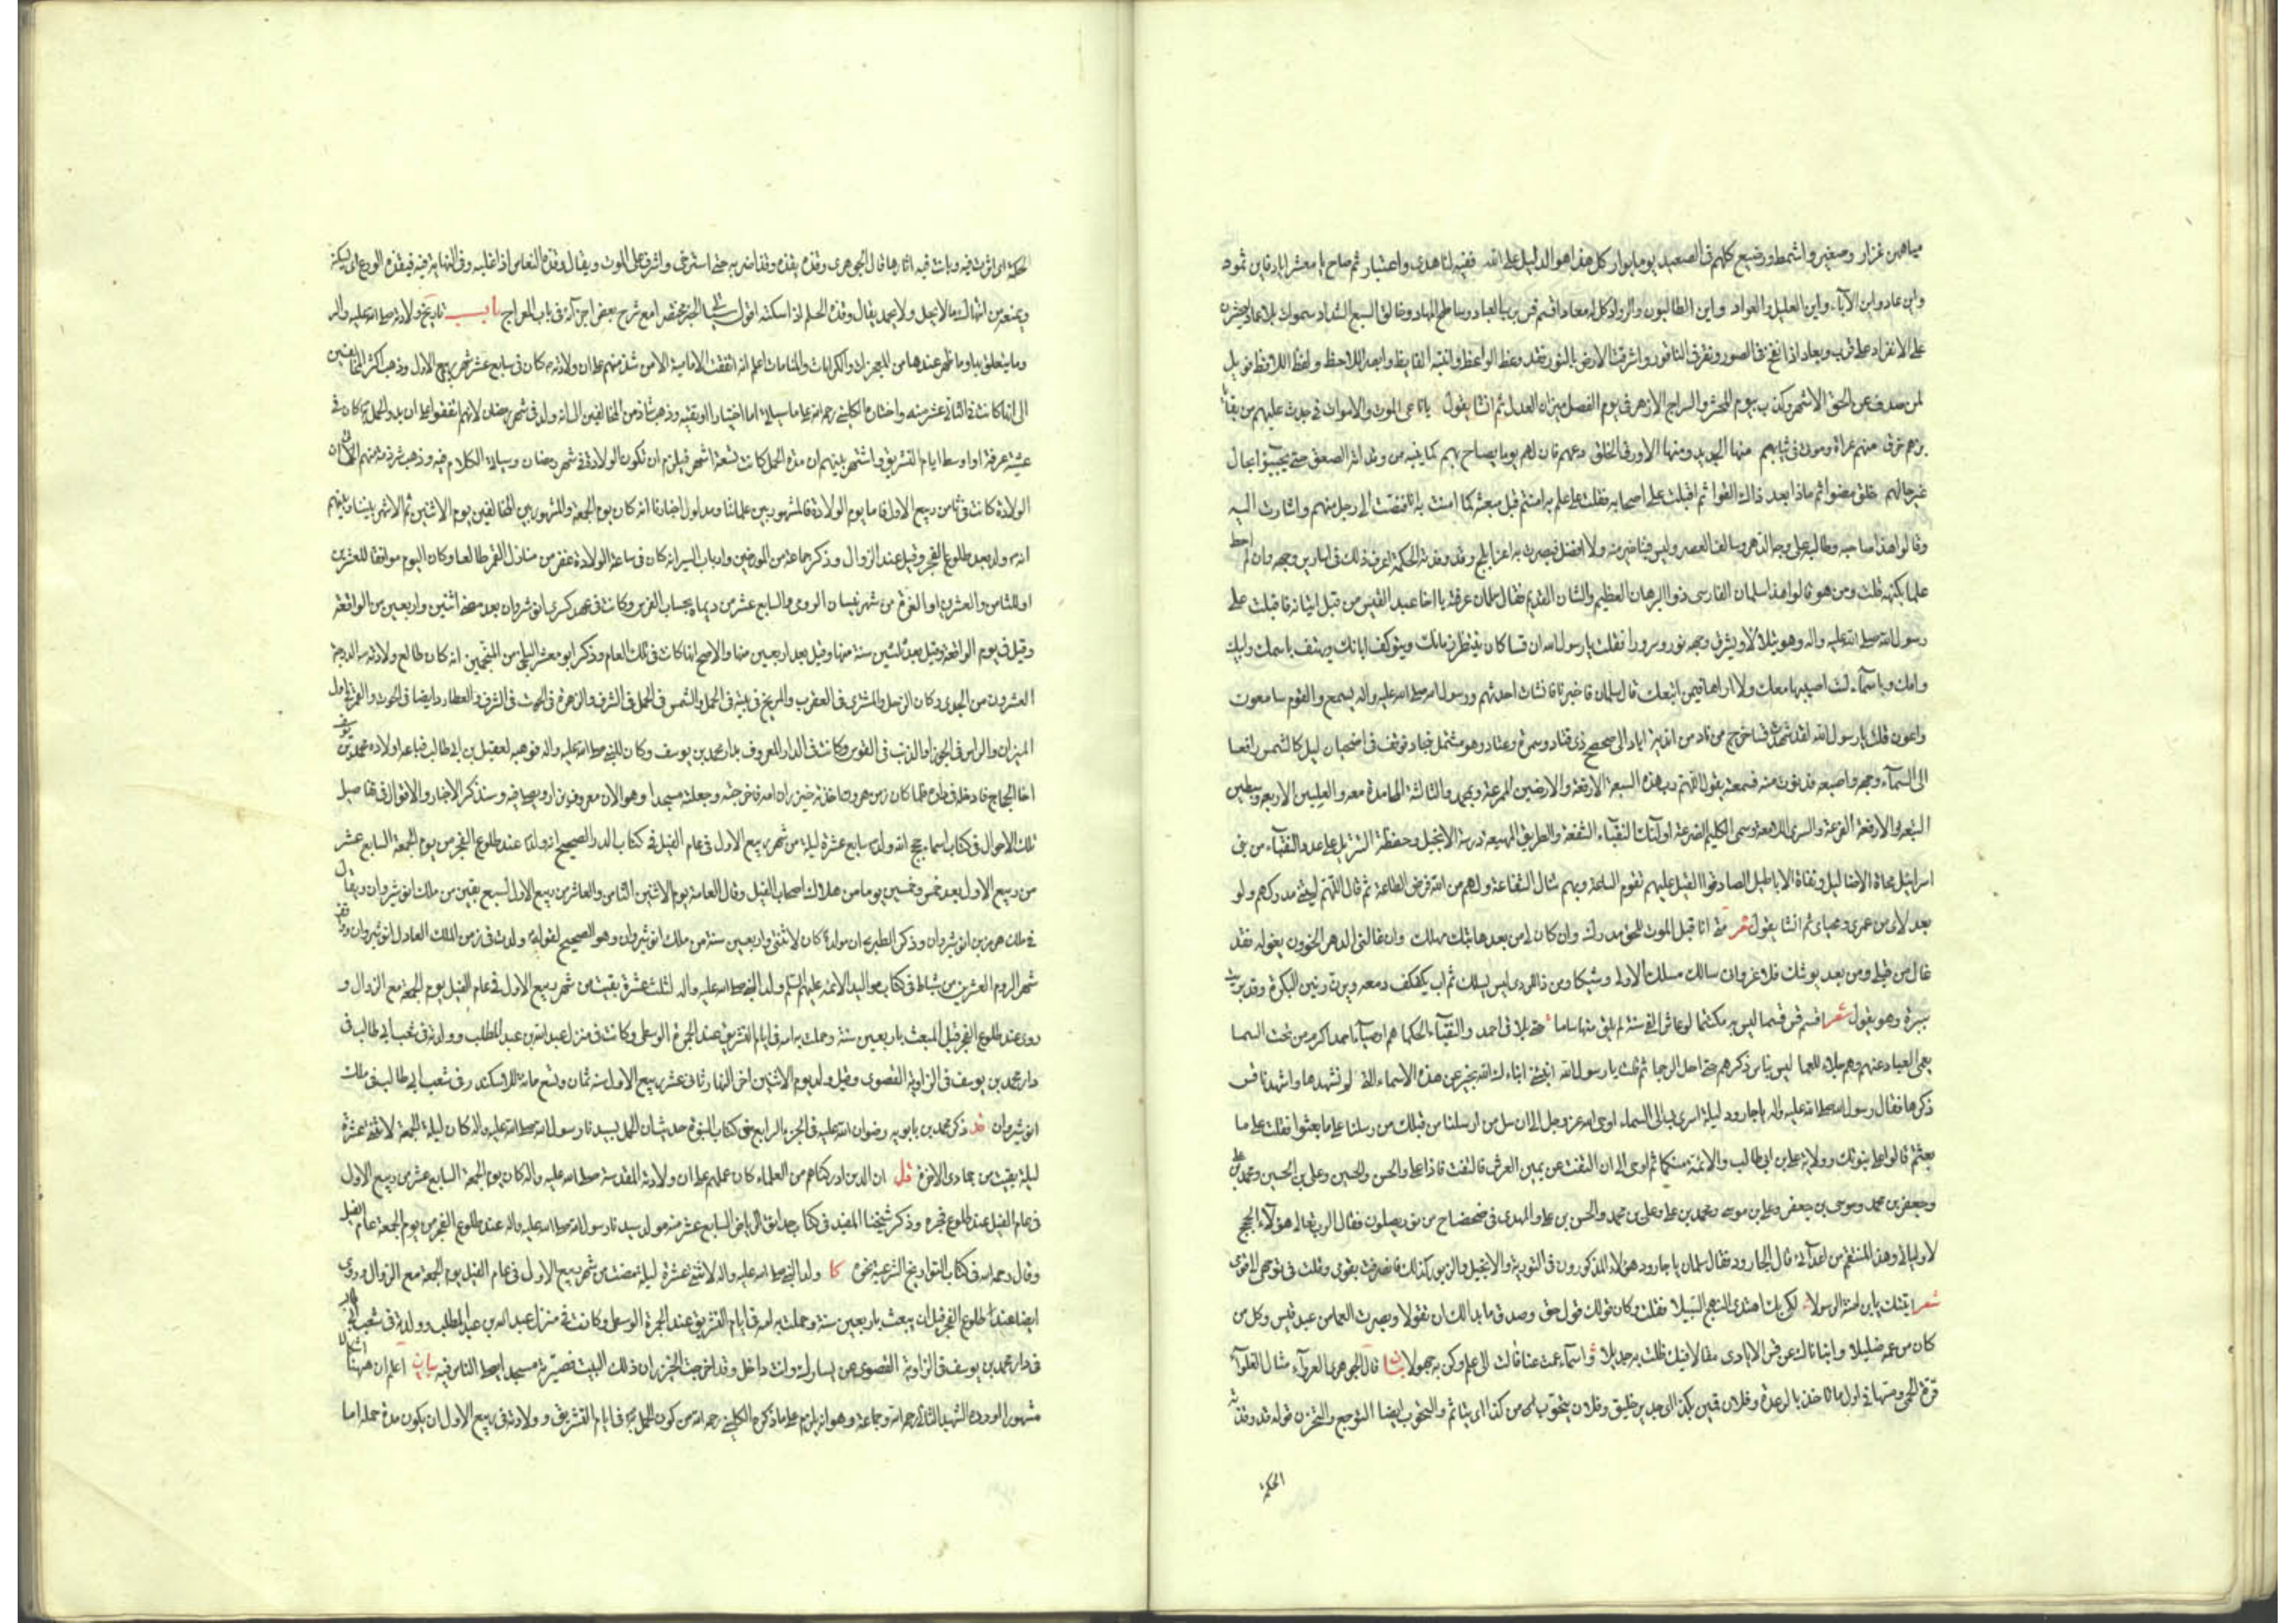 مياهين غزار وصغير واشمط ورضيع كلهم في الصعيد يوما بوار كل هذا هو الدليل على الله ففيه لنا هدى واعتبار ثم صاح يا معشر اياد فاين ثمود
واين عاد واين الآباء واين العليل والعواد واين الطالبون والرواد كل له معاد اقسم قس برب العباد وساطح المهاد وخالق السبع الشداد سموات بلا عماد ليحشرن
على الانفراد على قرب وبعاد اذا نفخ في الصور ونقر في الناقور واشرقت الارض بالنور فقد وعظ الواعظ وانتبه القايظ وابصر اللاحظ ولفظ اللافظ فويل
لمن صدف عن الحق الاشهر وكذب بيوم المحشر والسراج الازهر في يوم الفصل وميزان العدل ثم انشا يقول يا ناعى الموت والاموات في جدث عليهم من بقايا
بزهم خرق منهم عراة وموتى في ثيابهم منها الجديد ومنها الاورق الخلق دعهم فان لهم يوما يصاح بهم كما ينبه من نوماته الصعق حتى يجيئوا بحال
غير حالهم خلق مضوا ثم ماذا بعد ذاك لقوا ثم اقبلت على اصحابه فقلت على علم به امنتم قبل مبعثه كما امنت به انا فنصت الى رجل منهم واشارت اليه
وقالوا هذا صاحبه وطالبه على وجه الدهر وسالف العصر وليس فينا خير منه ولا افضل فبصرت به اغر ابلج قد وقذته الحكمة اعرف ذلك في اسارير وجهه وان لم احط
علما بكنهه قلت ومن هو قالوا هذا سلمان الفارسى ذو البرهان العظيم والشان القديم فقال سلمان عرفته يا اخا عبد القيس من قبل اتيانه فاقبلت على
رسول الله صلى الله عليه واله وهو يتلألأ ويشرق وجهه نورا وسرورا فقلت يا رسول الله ان قسا كان ينتظر زمانك ويتوكف ابانك ويهتف باسمك وابيك
وامك وباسماء لست اصيبها معك ولا اراها فيمن اتبعك قال سلمان فاخبرنا فانشات احدثهم ورسول الله صلى الله عليه واله يسمع والقوم سامعون
واعون قلت يا رسول الله لقد شهدت قسا خرج من ناد من اندية اياد الى صحصح ذى قتاد وسمرة وعتاد وهو مشتمل بنجاد فوقف في اضحيان ليل كالشمس رافعا
الى السماء وجهه واصبعه فدنوت منه فسمعته يقول اللهم رب هذه السبعة الارقعة والارضين الممرعة وبمحمد والثالثة المحامدة معه والعليين الاربعة وسبطيه
التبعة والارفعة الفرعة والسرى اللامعة وسمى الكليم الضرعة اولئك النقباء الشفعة والطريق المهيعة درسة الانجيل وحفظة التنزيل على عدد النقباء من بنى
اسرائيل محاة الاضاليل ونفاة الاباطيل الصادقوا القيل عليهم تقوم الساعة وبهم تنال الشفاعة ولهم من الله فرض الطاعة ثم قال اللهم ليتنى مدركهم ولو
بعد لاى من عمرى ومحياى ثم انشا يقول شعر متى انا قبل الموت للحق مدرك وان كان لى من بعد هاتيك مهلك وان غالنى الدهر الخؤون بغوله فقد
غال من قبلى ومن بعد يوشك فلا غرو انى سالك مسلك الاولى وشيكا ومن ذا للردى ليس يسلك ثم اب يكفكف دمعه ويرن رنين البكرة وقد بريت
ببرة وهو يقول شعر اقسم قس قسما ليس به مكتتما لو عاش الفى سنة لم يلق منها ساما حتى يلاقى احمد والنقباء الحكما هم اوصياء احمد اكرم من تحت السما
يعمى العباد عنهم وهم جلاء للعما ليس بناس ذكرهم حتى احل الرجما ثم قلت يا رسول الله انبئنى انباك الله بخبر عن هذه الاسماء التى لم نشهدها واشهدنا قس
ذكرها فقال رسول الله صلى الله عليه واله يا جارود ليلة اسرى بى الى السماء اوحى الله عز وجل الى ان سل من ارسلنا من قبلك من رسلنا على ما بعثوا فقلت على ما
بعثتم قالوا على نبوتك وولاية على بن ابى طالب والائمة منكما ثم اوحى الى ان التفت عن يمين العرش فالتفت فاذا على والحسن والحسين وعلى بن الحسين ومحمد بن على
وجعفر بن محمد وموسى بن جعفر وعلى بن موسى ومحمد بن على وعلى بن محمد والحسن بن على والمهدى في ضحضاح من نور يصلون فقال الرب تعالى هؤلاء الحجج
لاوليائى وهذا المنتقم من اعدائى قال الجارود فقال سلمان يا جارود هؤلاء المذكورون في التورية والانجيل والزبور كذلك فانصرفت بقومى وقلت في توجهى الى قومى
شعر اتيتك يا بن امنة الرسولا لكى بك اهتدى النهج السبيلا فقلت وكان قولك قول حق وصدق ما بدا لك ان تقولا وبصرت العما من عبد قيس وكل من
كان من عمه ضليلا وانبانا لك عن قس الايادى مقالا فيك ظلت به جديلا واسماء عمت عنا فالت الى علم وكن به جهولا بيان قال الجوهرى العرواء مثال الغلواء
قرة الحمى ومسها في اول ما تاخذ بالرعدة وفلان قمين بكذا اى جدير خليق وفلان يتحوب من كذا اى يتاثم والتحوب ايضا التوجع والتحزن قوله قد وقذته
الحكمة
الحكمة اى اثرت فيه وبانت فيه اثارها قال الجوهرى وقذه يقذه وقذا ضربه حتى استرخى واشرف على الموت ويقال وقذه النعاس اذا غلبه وفى النهاية فيه فيقذه الورع اى يسكنه
ويمنعه من انتهاك ما لا يحل ولا يجمل يقال وقذه الحلم اذا سكنه اقول سياتى الخبر مختصرا مع شرح بعض اجزائه في باب المعراج باب تاريخ ولادته صلى الله عليه واله
وما يتعلق بها وما ظهر عندها من المعجزات والكرامات والمنامات اعلم انه اتفقت الامامية الا من شذ منهم على ان ولادته كان في سابع عشر شهر ربيع الاول وذهب اكثر المخالفين
الى انها كانت في الثانى عشر منه واختاره الكلينى رحمه الله على ما سياتى اما اختيارا او تقية وذهب شاذ من المخالفين الى انه ولد في شهر رمضان لانهم اتفقوا على ان بدو الحمل كان في
عشية عرفة او اوسط ايام التشريق واشتهر بينهم ان مدة الحمل كانت تسعة اشهر فيلزم ان تكون الولادة في شهر رمضان وسياتى الكلام فيه وذهب شرذمة منهم الى ان
الولادة كانت في ثامن ربيع الاول فاما يوم الولادة فالمشهور بين علمائنا ومدلول اخبارنا انه كان يوم الجمعة والمشهور بين المخالفين يوم الاثنين ثم الاشهر بيننا وبينهم
انه ولد بعد طلوع الفجر وقيل عند الزوال وذكر جماعة من المورخين وارباب السير انه كان في ساعة الولادة غفر من منازل القمر طالعا وكان اليوم موافقا للعشرين
او للثامن والعشرين او الغرة من شهر نيسان الرومى والسابع عشر من ديماه بحساب الفرس وكانت في عهد كسرى انوشروان بعد مضى اثنين واربعين من الواقعة
وقيل في يوم الواقعة وقيل بعد ثلثين سنة منها وقيل بعد اربعين منها والاصح انها كانت في ذلك العام وذكر ابو معشر البلخى من المنجمين انه كان طالع ولادته الدرجة
العشرون من الجدى وكان الزحل والمشترى في العقرب والمريخ في بيته في الحمل والشمس في الحمل في الشرف والزهرة في الحوت في الشرف والعطارد ايضا في الحوت والقمر في اول
الميزان والراس في الجوزا والذنب في القوس وكانت في الدار المعروف بدار محمد بن يوسف وكان للنبى صلى الله عليه واله فوهبه لعقيل بن ابى طالب فباعه اولاده محمد بن يوسف
اخا الحجاج فادخله في داره فلما كان زمن هرون اخذته خيزران امه فاخرجته وجعلته مسجدا وهو الان معروف يزار ويصلى فيه وسنذكر الاخبار والاقوال في تفاصيل
تلك الاحوال في كتاب اسماء حجج الله ولد سابع عشرة ليلة من شهر ربيع الاول في عام الفيل في كتاب الدر الصحيح انه ولد عند طلوع الفجر من يوم الجمعة السابع عشر
من ربيع الاول بعد خمس وخمسين يوما من هلاك اصحاب الفيل وقال العامة يوم الاثنين الثامن والعاشر من ربيع الاول لسبع بقين من ملك انوشيروان ويقال
في ملك هرمز بن انوشيروان وذكر الطبرى ان مولده كان لاثنتى واربعين سنة من ملك انوشيروان وهو الصحيح لقوله ولدت في زمن الملك العادل انوشيروان ووافق
شهر الروم العشرين من شباط في كتاب مواليد الائمة عليهم السلم ولد النبى صلى الله عليه واله لثلث عشرة بقيت من شهر ربيع الاول في عام الفيل يوم الجمعة مع الزوال و
روى عند طلوع الفجر قبل المبعث باربعين سنة وحملت به امه في ايام التشريق عند الجمرة الوسطى وكانت في منزل عبد الله بن عبد المطلب وولدته في شعب ابى طالب في
دار محمد بن يوسف في الزاوية القصوى وقيل ولد يوم الاثنين اخر النهار ثانى عشر ربيع الاول سنة ثمان وتسع مائة للاسكندر في شعب ابى طالب في ملك
انوشيروان قد ذكر محمد بن بابويه رضوان الله عليه في الجزء الرابع من كتاب النبوة حديث ان الحمل بسيدنا رسول الله صلى الله عليه واله كان ليلة الجمعة لاثنتى عشرة
ليلة بقيت من جمادى الاخرة قل ان الذين ادركناهم من العلماء كان عملهم على ان ولادته المقدسة صلى الله عليه واله كان يوم الجمعة السابع عشر من ربيع الاول
في عام الفيل عند طلوع فجره وذكر شيخنا المفيد في كتاب حدائق الرياض السابع عشر منه مولد سيدنا رسول الله صلى الله عليه واله عند طلوع الفجر من يوم الجمعة عام الفيل
وقال رحمه الله في كتاب التواريخ الشرعية نحوه كا ولد النبى صلى الله عليه واله لاثنتى عشرة ليلة مضت من شهر ربيع الاول في عام الفيل يوم الجمعة مع الزوال وروى
ايضا عند طلوع الفجر قبل ان يبعث باربعين سنة وحملت به امه في ايام التشريق عند الجمرة الوسطى وكانت في منزل عبد الله بن عبد المطلب وولدته في شعب ابى طالب
في دار محمد بن يوسف في الزاوية القصوى عن يسارك وانت داخل وقد اخرجت الخيزران ذلك البيت فصيرته مسجدا يصلى الناس فيه بيان اعلم ان ههنا اشكالا
مشهورا اورده الشهيد الثانى رحمه الله وجماعة وهو انه يلزم على ما ذكره الكلينى رحمه الله من كون الحمل به في ايام التشريق وولادته في ربيع الاول ان يكون مدة حمله اما